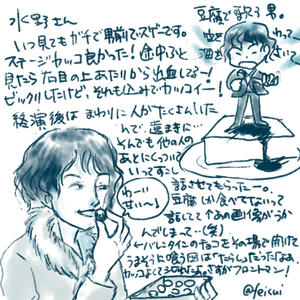 水野さん
いつ見てもガチで男前でスゲーです。
ステージカッコ良かった!途中ふと
見たら右目の上あたりから出血してるー!
ビックリしたけど、それも込みでカッコイイー!
終演後は まわりに人がたくさんいた
んで、遠まきに…
そんでも他の人の
あとにくっついて
いってすこし
話させてもらったー。
豆腐しか食べてないって
話してて↑あの画像がうか
んでしまって…(笑)
←バレンタインのチョコをその場で開けて
うまそうに食う図は
フロントマン!
豆腐で歌う男。
わーい
甘いー
@feisui